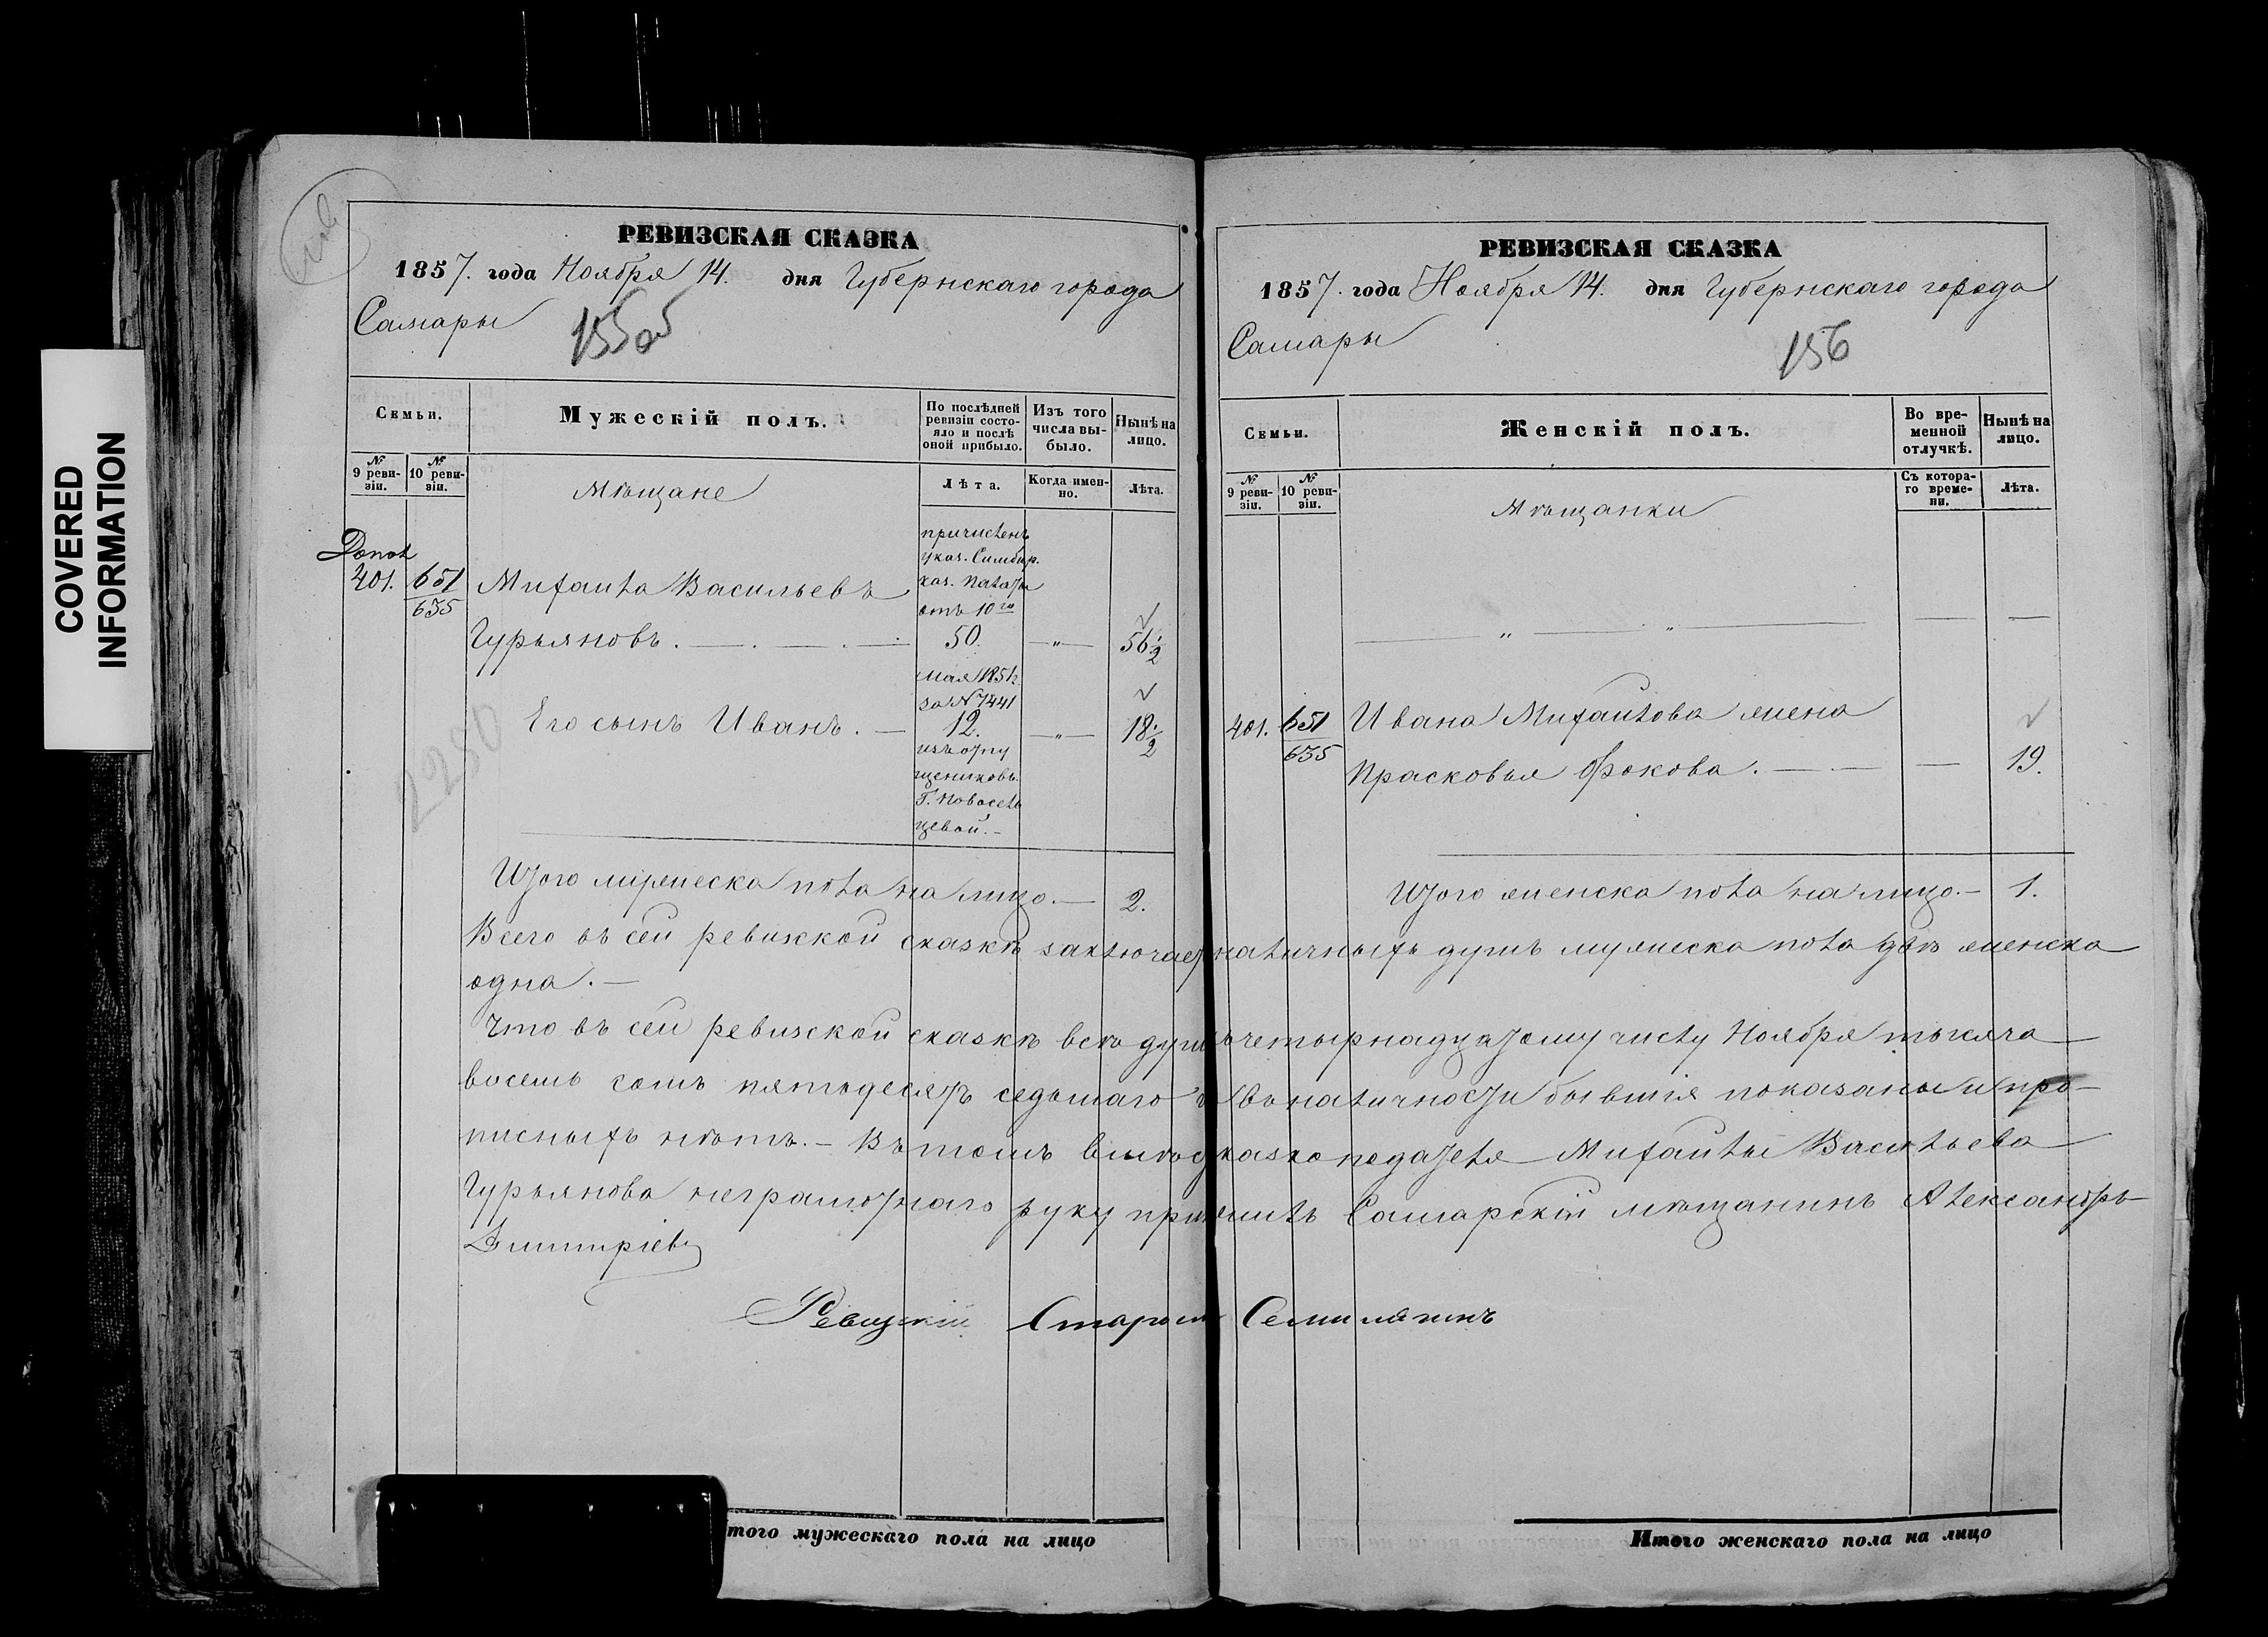 COVERED
INFORMATION
РЕВИЗСКАЯ СКАЗКА
1857. года Ноября 14. дня Губернскаго города
Самары
155об
Семьи.
Мужескій полъ.
По послѣдней ревизіи состояло и послѣ оной прибыло.
Изъ того числа выбыло.
Нынѣ на лицо.
№ 9 ревизіи.
№ 10 ревизіи.
Мѣщане
Лѣта.
Когда именно.
Лѣта.
Допол
401. 651
635
Михайла Васильевъ
Гурьяновъ.
причисленъ
указ. Симбир.
каз. палаты
отъ 10го
50. " 56 1/2
мая 1851 г.
за № 7441
Его сынъ Иванъ. 12. " 18 1/2
изъ отпу
щениковъ
Г. Новосель
цевой.
2280
Итого мужеска пола на лицо. 2.
РЕВИЗСКАЯ СКАЗКА
1857. года Ноября 14. дня Губернскаго города
Самары
156
Семьи.
Женскій полъ.
Во временной отлучкѣ.
Нынѣ на лицо.
№ 9 ревизіи.
№ 10 ревизіи.
Мѣщанки
Съ котораго времени.
Лѣта.
401. 651
635
Ивана Михайлова жена
Прасковья Фокова. 19.
Итого женска пола на лицо. 1.
Всего въ сей ревизской сказкѣ заключает наличныхъ душъ мужеска пола двѣ женска
одна.
Что въ сей ревизской сказкѣ всѣ души къ четырнадцатому числу Ноября тысяча
восемь сотъ пятьдесятъ седьмаго г въ наличности бывшія показаны и про-
писныхъ нѣтъ. Въ томъ вмѣсто сказкоподателя Михайлы Васильева
Гурьянова неграмотнаго руку приложилъ Самарскій мѣщанинъ Александръ
Дмитріевъ
Староста
Итого мужескаго пола на лицо
Итого женскаго пола на лицо